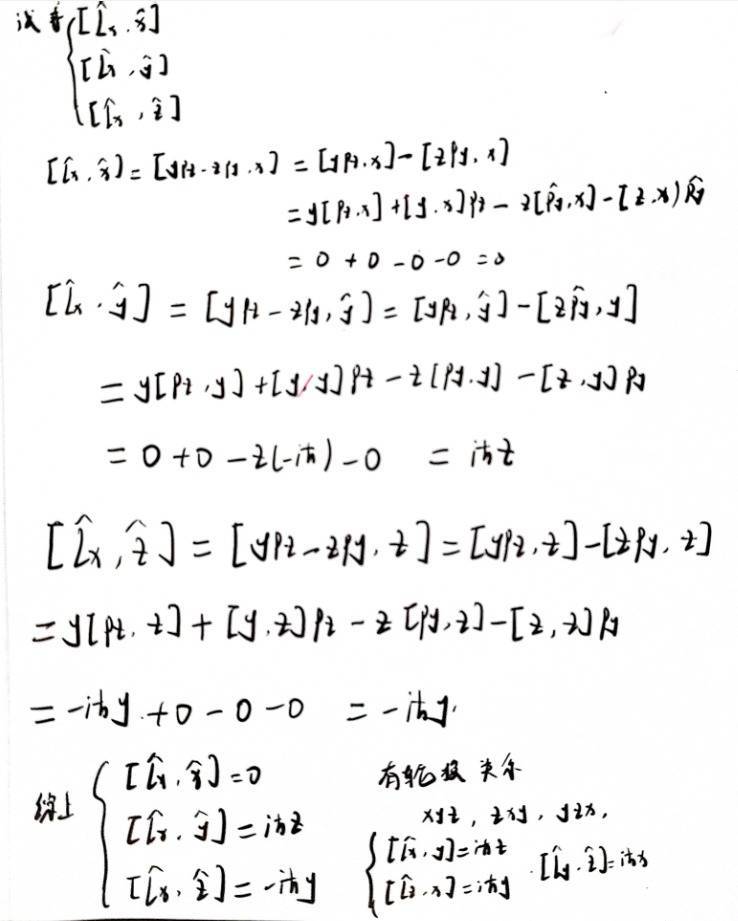 试求{[L̂x, x̂]
[L̂x, ŷ]
[L̂x, ẑ]
[L̂x, x̂] = [ypz - zpy, x] = [ypz, x] - [zpy, x]
= y[pz, x] + [y, x]pz - z[p̂y, x] - [z, x)p̂y
= 0 + 0 - 0 - 0 = 0
[L̂x, ŷ] = [ypz - zpy, ŷ] = [ypz, ŷ] - [zp̂y, y]
= y[pz, y] + [y, y]pz - z[py, y] - [z, y]py
= 0 + 0 - z(-iħ) - 0 = iħz
[L̂x, ẑ] = [ypz - zpy, z] = [ypz, z] - [zpy, z]
= y[pz, z] + [y, z]pz - z[py, z] - [z, z]py
= -iħy + 0 - 0 - 0 = -iħy.
综上 { [L̂x, x̂] = 0
[L̂x, ŷ] = iħz
[L̂x, ẑ] = -iħy
有轮换关系
xyz, zxy, yzx,
{ [L̂x, y] = iħz [L̂y, ẑ] = iħx
[L̂z, x] = iħy